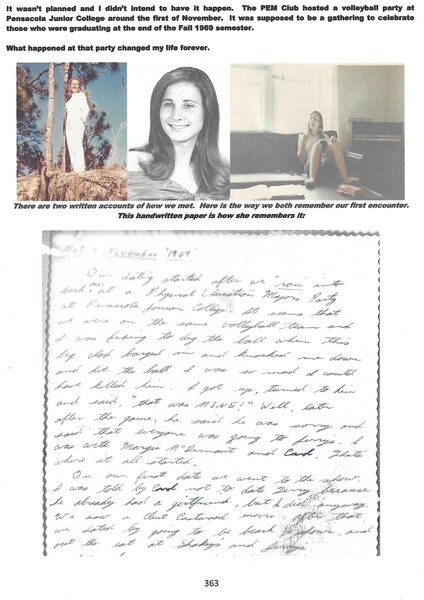 It wasn't planned and I didn't intend to have it happen. The PEM Club hosted a volleyball party at
Pensacola Junior College around the first of November. It was supposed to be a gathering to celebrate
those who were graduating at the end of the Fall 1969 semester.
What happened at that party changed my life forever.
There are two written accounts of how we met. Here is the way we both remember our first encounter.
This handwritten paper is how she remembers it:
Met - November "1969"
Our dating started after we "ran into
each other" at a Physical Education Majors Party
at Pensacola Junior College. It seems that
we were on the same volleyball team and
I was fixing to dig the ball when this
big clod barged in and knocked me down
and hit the ball. I was so mad I could
have killed him. I got up, turned to him
and said, "that was MINE!" Well, later
after the game, he said he was sorry and
said that everyone was going to Jerrys. I
was with Margie McDermont and Carol. Thats
where it all started.
On our first date we went to the show.
I was told by Carol not to date Jerry because
he already had a girlfriend, but I did anyway.
We saw a Clint Eastwood movie. After that
we dated by going to the beach, shows, and
out to eat at Shakey's and Jerrys
363